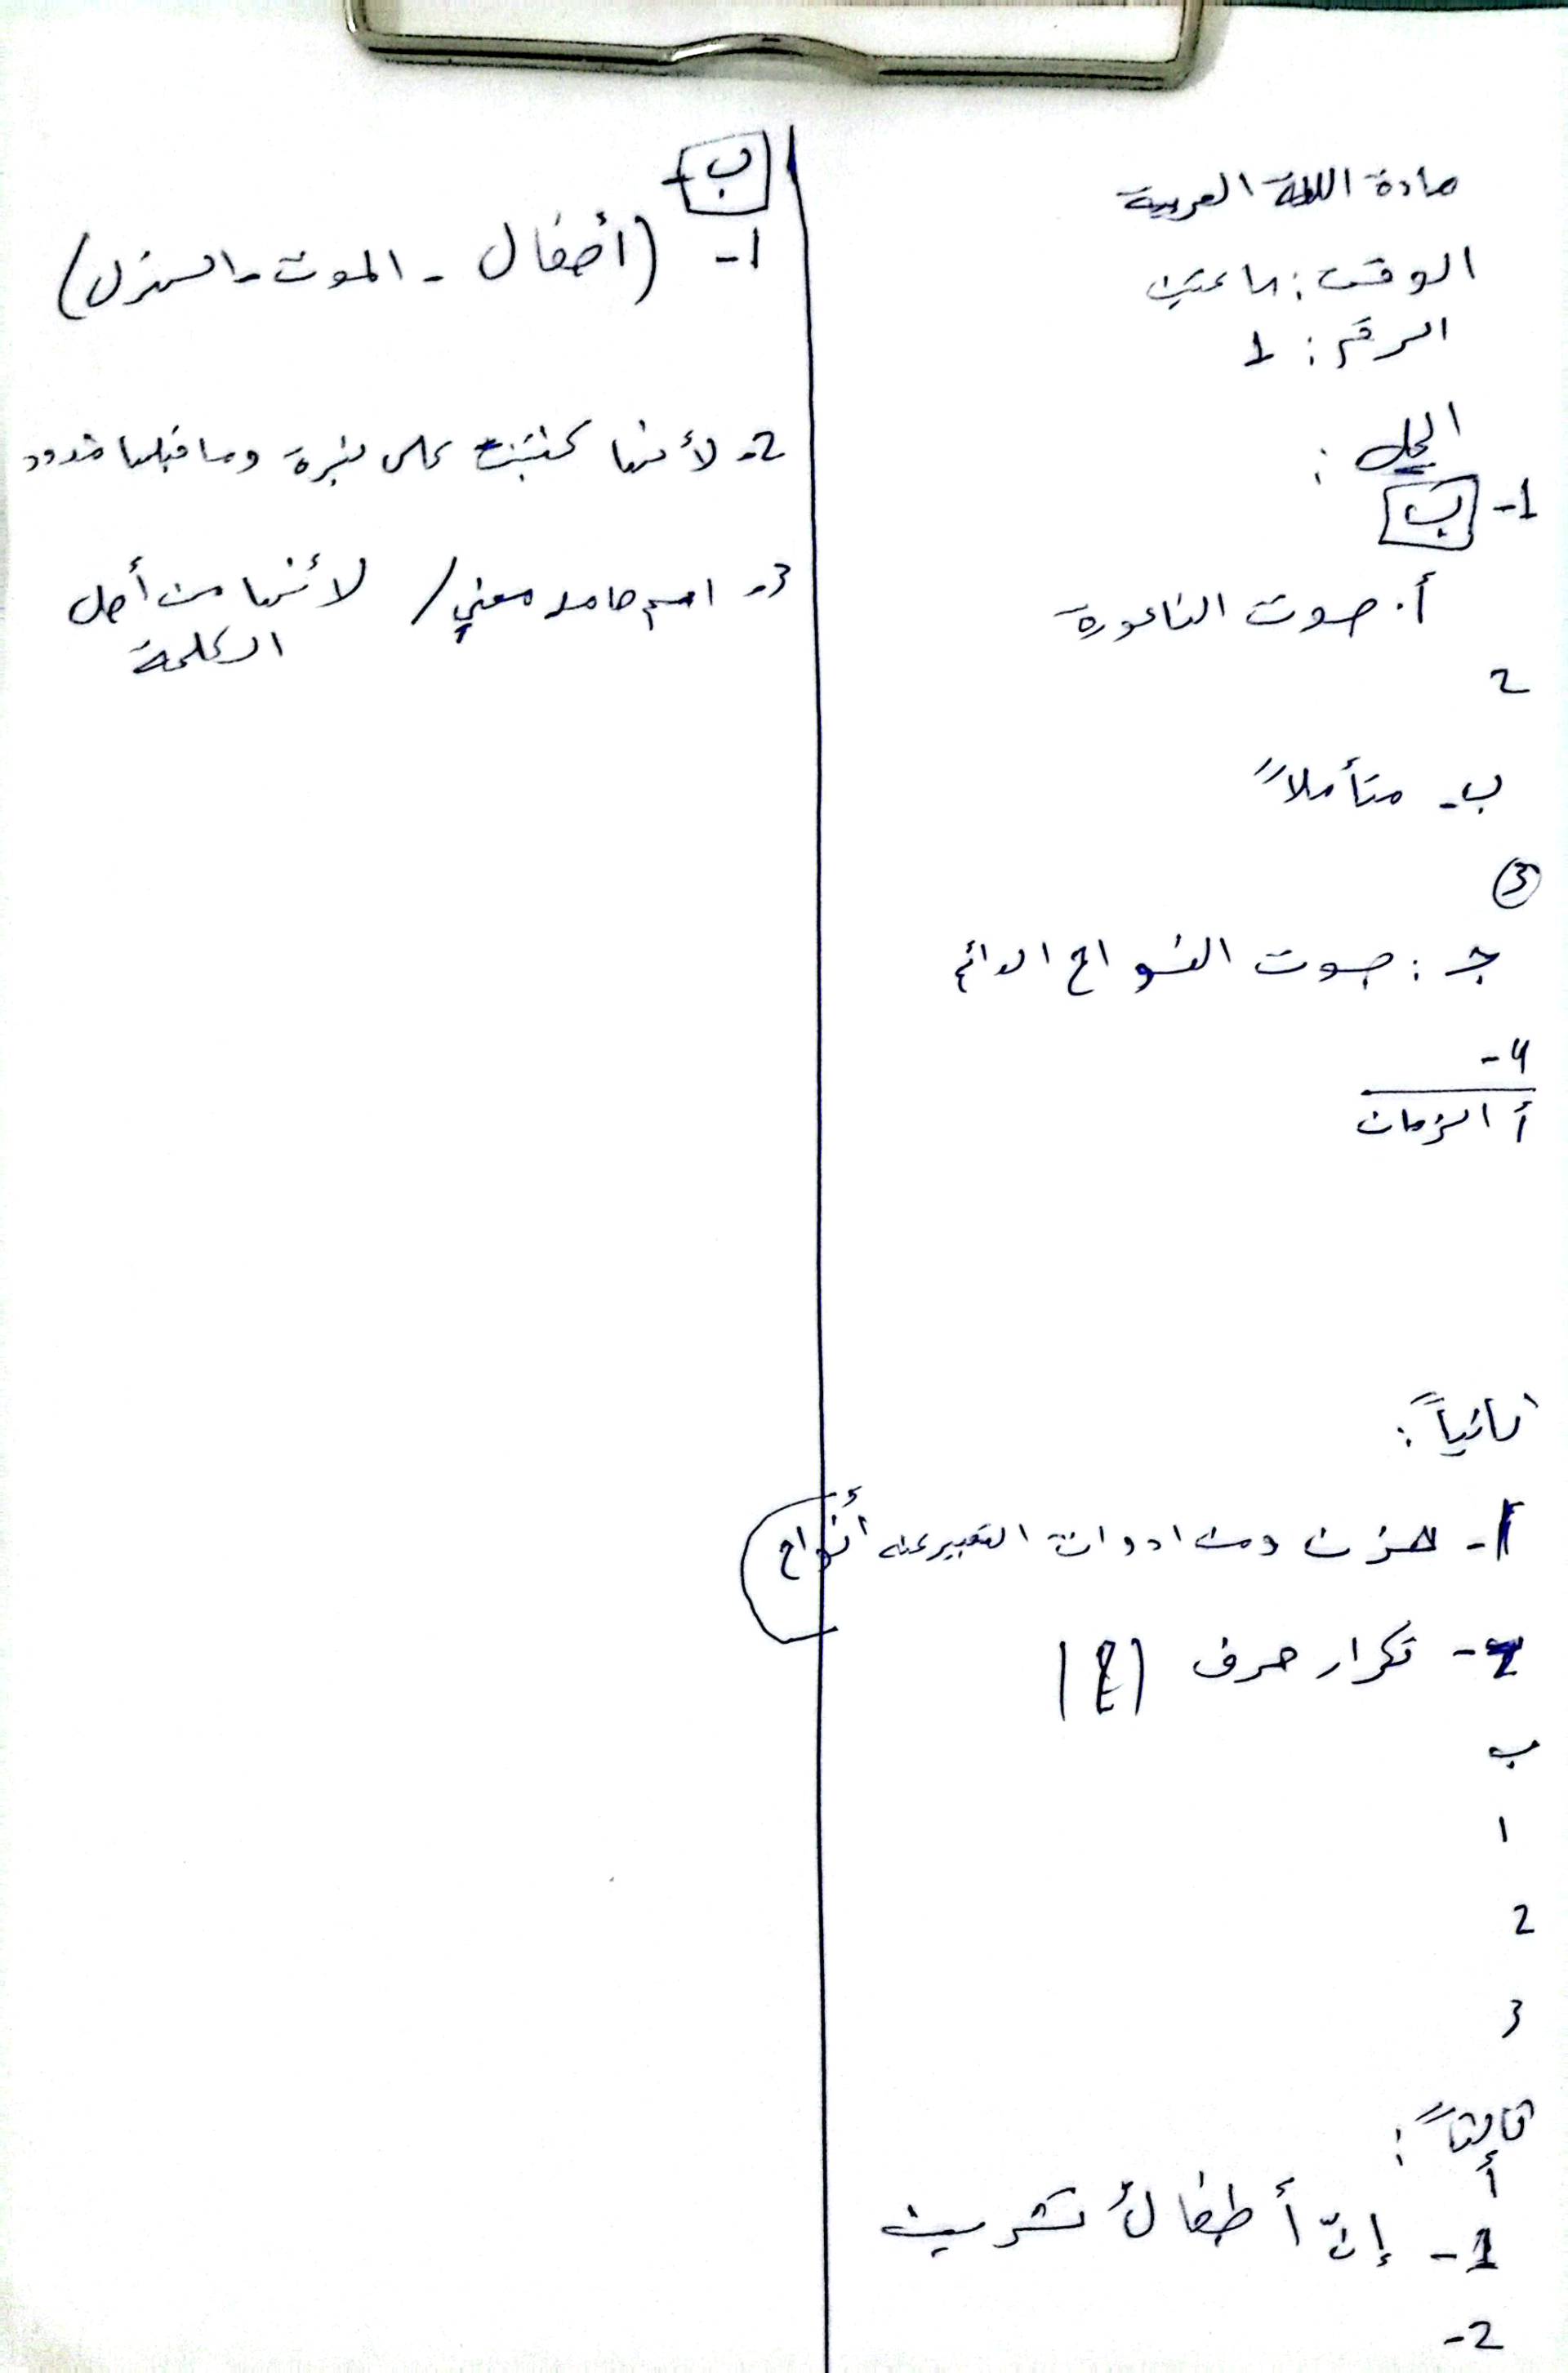 مادة اللغة العربية
الوقت: ساعتين
الرقم: 1
الحل:
1- ب
أ. صوت الناعورة
2
ب- متأملاً
3
جـ: صوت النواح الدائم
4-
أ الزمان
ثانياً:
1- حزن ومن ادوات التعبير عنه أنواح
2- تكرار حرف
ب
1
2
3
ثالثاً:
أ
1- إنّ أطفالُ تشرين
2-
ب-
1- (أطفال - الموت - المنزل)
2- لأنها كتبت على نبرة وما قبلها
3- اسم جامد معني / لأنها من أصل
الكلمة